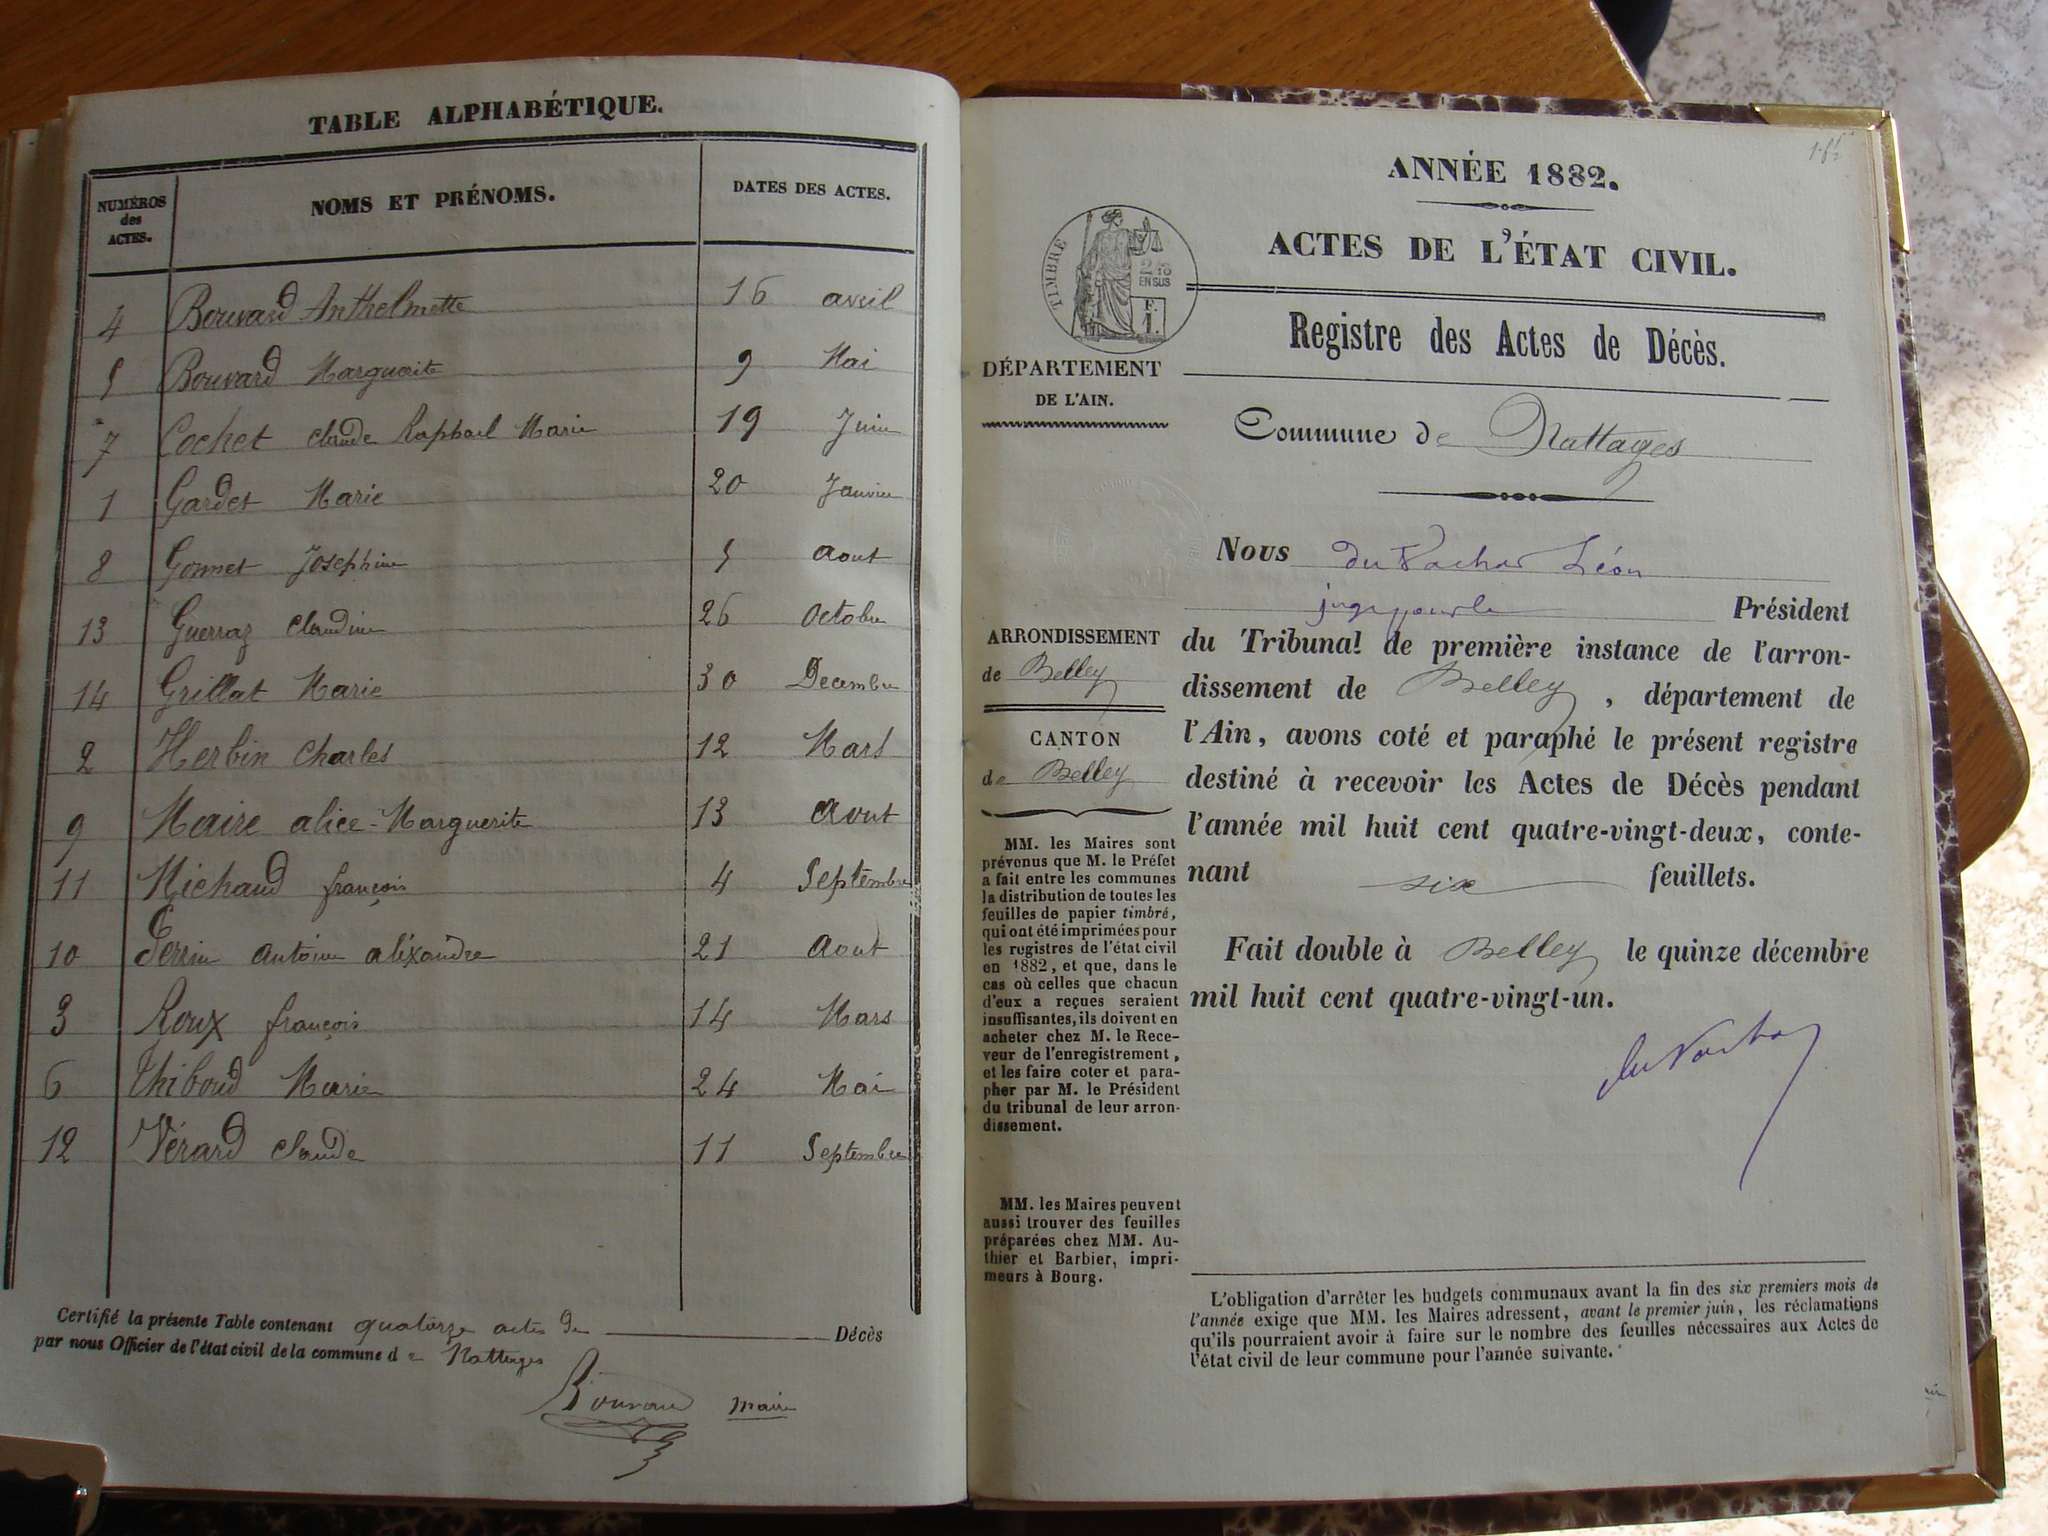 TABLE ALPHABÉTIQUE.
NUMÉROS des ACTES. NOMS ET PRÉNOMS. DATES DES ACTES.
4 Bouvard Anthelmette 16 avril
5 Bouvard Marguerite 9 Mai
7 Cochet Claude Raphael Marie 19 Juin
1 Gardet Marie 20 Janvier
8 Gonnet Josephine 5 Aout
13 Guerraz Claudine 26 Octobre
14 Grillat Marie 30 Decembre
2 Herbin Charles 12 Mars
9 Maire alice-Marguerite 13 Aout
11 Michaud françois 4 Septembre
10 Perrin antoine aléxandre 21 Aout
3 Roux françois 14 Mars
6 Thiboud Marie 24 Mai
12 Vérard Claude 11 Septembre
Certifié la présente Table contenant quatorze actes de Décès
par nous Officier de l'état civil de la commune de Nattages
Bouvard maire
ANNÉE 1882.
ACTES DE L'ÉTAT CIVIL.
TIMBRE
2/10
EN SUS
F.
1.
Registre des Actes de Décès.
DÉPARTEMENT
DE L'AIN.
Commune de Nattages
ARRONDISSEMENT
de Belley
CANTON
de Belley
MM. les Maires sont
prévenus que M. le Préfet
a fait entre les communes
la distribution de toutes les
feuilles de papier timbré,
qui ont été imprimées pour
les registres de l'état civil
en 1882, et que, dans le
cas où celles que chacun
d'eux a reçues seraient
insuffisantes, ils doivent en
acheter chez M. le Rece-
veur de l'enregistrement,
et les faire coter et para-
pher par M. le Président
du tribunal de leur arron-
dissement.
MM. les Maires peuvent
aussi trouver des feuilles
préparées chez MM. Au-
thier et Barbier, impri-
meurs à Bourg.
Nous du Vachat Léon
juge pour le Président
du Tribunal de première instance de l'arron-
dissement de Belley, département de
l'Ain, avons coté et paraphé le présent registre
destiné à recevoir les Actes de Décès pendant
l'année mil huit cent quatre-vingt-deux, conte-
nant six feuillets.
Fait double à Belley le quinze décembre
mil huit cent quatre-vingt-un.
du Vachat
L'obligation d'arrêter les budgets communaux avant la fin des six premiers mois de
l'année exige que MM. les Maires adressent, avant le premier juin, les réclamations
qu'ils pourraient avoir à faire sur le nombre des feuilles nécessaires aux Actes de
l'état civil de leur commune pour l'année suivante.